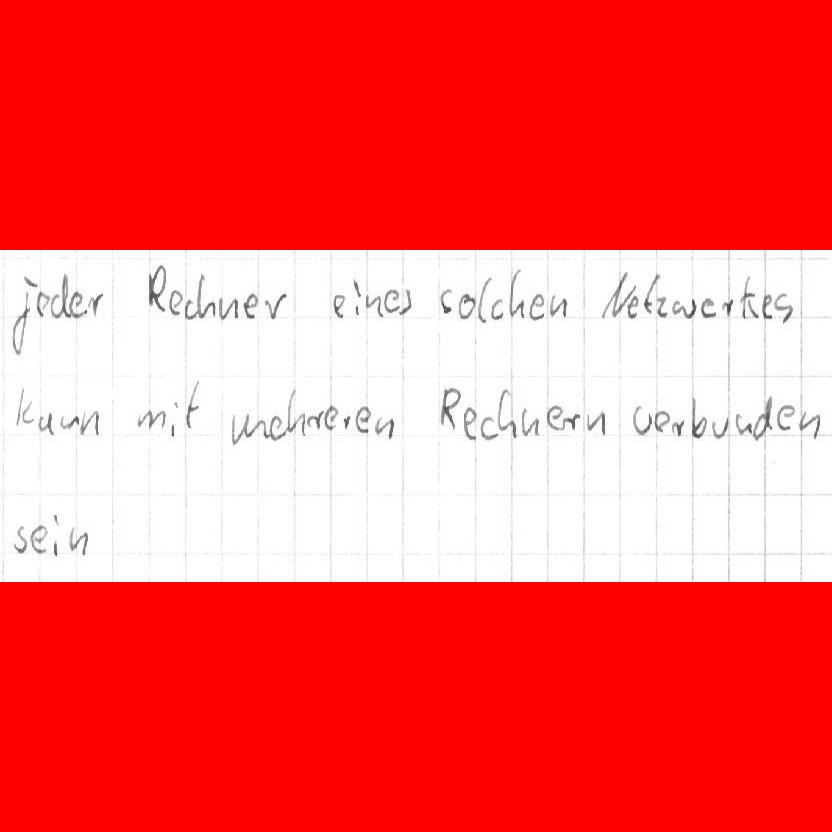 jeder Rechner eines solchen Netzwerkes
kann mit mehreren Rechnern verbunden
sein